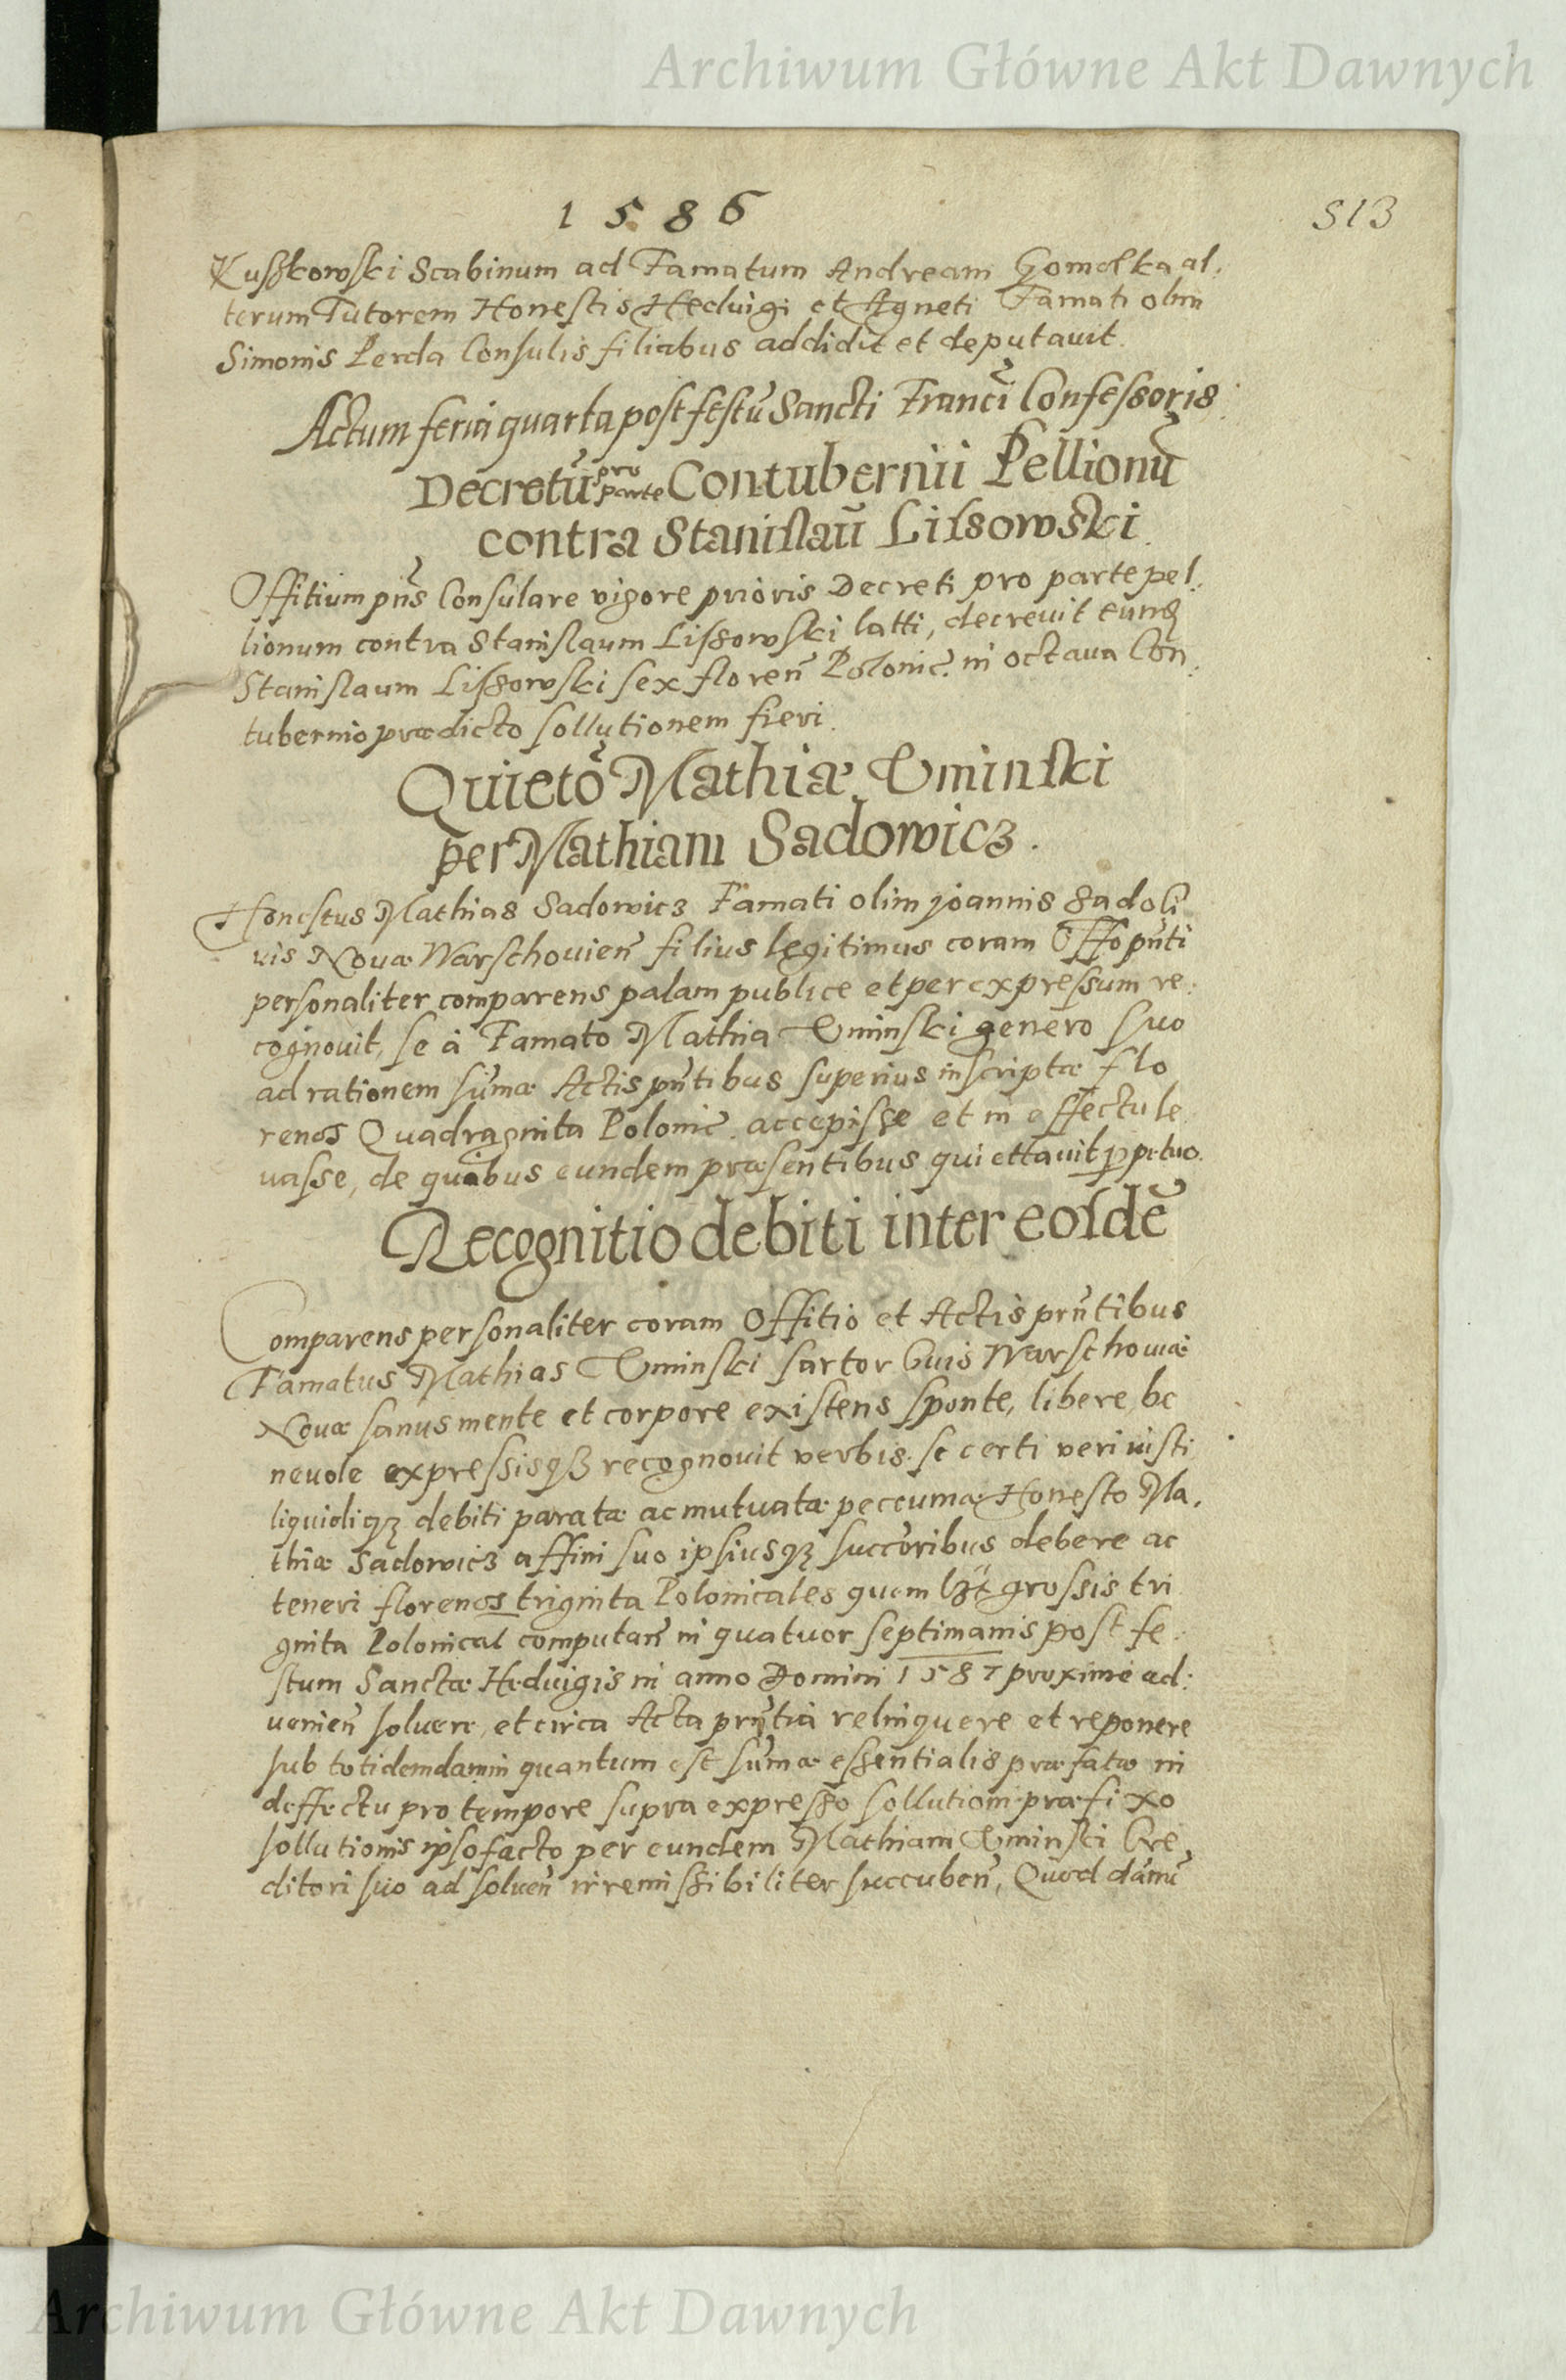 Archiwum Główne Akt Dawnych
1586
513
Kuszkowski Scabinum ad Famatum Andream Gomolka al:
terum Tutorem Honestis Hedvigi et Agneti Famati olim
Simonis Perda Consulis filiabus addidit et deputauit.
Actum feria quarta post festũ Sancti Franci Confessoris
Decretũ pro parte Contubernii Pellionũ
contra Stanislaũ Lissowski.
Offitium pñs Consulare vigore prioris Decreti pro parte pel:
lionum contra Stanislaum Lissowski latti, decrevit eundẽ
Stanislaum Lissowski sex floreñ Polonic. in octava Con:
tubernio prædicto sollutionem fieri.
Quieto Mathiæ Vminski
per Mathiam Sadowicz.
Honestus Mathias Sadowicz Famati olim joannis Sado Ci
vis Novæ Warschovieñ filius legitimus coram Offo pñti
personaliter comparens palam publice et per expressum re:
cognovit, se à Famato Mathia Vminski genero suo
ad rationem sum̃æ Actis pñtibus superius inscriptæ flo
renos Quadraginta Polonic. accepisse et in effectu le
vasse, de quibus eundem præsentibus quiettavit ppetuo.
Recognitio debiti inter eosdẽ
Comparens personaliter coram Offitio et Actis prñtibus
Famatus Mathias Vminski sartor Civis Warschoviæ
Novæ sanus mente et corpore existens sponte, libere, be
nevole expressisqȝ recognovit verbis. se certi veri iusti
liquidiqȝ debiti paratæ ac mutuatæ peccuniæ Honesto Ma,
thiæ Sadowicz affini suo ipsiusqȝ succoribus debere ac
teneri florenos triginta Polonicales quem lȝt grossis tri
ginta Polonical computañ in quatuor septimanis post fe:
stum Sanctæ Hedvigis in anno Domini 1587 proxime ad:
venieñ solvere, et circa Acta prñtia relinquere et reponere
sub totidem damni quantum est sum̃æ essentialis præfatæ in
deffectu pro tempore supra expresso sollutioni præfixo
sollutionis ipso facto per eundem Mathiam Vminski Cre
ditori suo ad solveñ irremissibiliter succubeñ, Quod damũ
Archiwum Główne Akt Dawnych